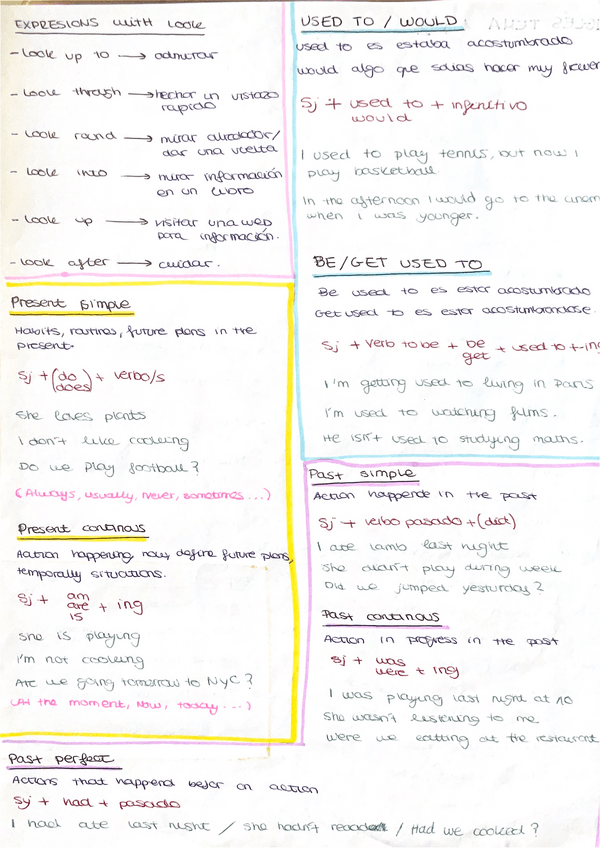 EXPRESIONS WITH LOOK
- Look up to → admirar
- Look through → hechar un vistazo
rapido
- Look round → mirar alrededor/
dar una vuelta
- Look into → mirar información
en un libro
- Look up → visitar una web
para información.
- Look after → cuidar.
Present simple
Habits, routines, future plans in the
present.
Sj + (do
does) + verbo/s
She loves plants
I don't like cooking
Do we play football?
(Always, usually, never, sometimes...)
Present continous
Aation happening now, define future plans,
temporally situations.
Sj + am
are
is + ing
She is playing
I'm not cooking
Are we going tomorrow to NYC?
(At the moment, Now, today...)
USED TO / WOULD
used to es estaba acostumbrado
would algo que solias hacer muy
Sj + used to + infenitivo
would
I used to play tennis, but now i
play basketball
In the afternoon I would go to the
when I was younger.
BE/GET USED TO
Be used to es estar acostumbrado
Get used to es estar acostumbrandose.
Sj + verb to be + be
get + used to +-ing
I'm getting used to living in Paris
I'm used to watching films.
He isn't used to studying maths.
Past simple
Action happende in the past
Sj + verbo pasado + (did)
I ate lamb last night
She didn't play during week
Did we jumped yesturday?
Past continous
Action in progress in the past
Sj + was
were + ing
I was playing last night at 10
She wasn't listening to me
Were we eatting at the restaurant
Past perfect
Actions that happend befor an action
Sj + had + pasado
I had ate last night / She hadn't / Had we cooked?